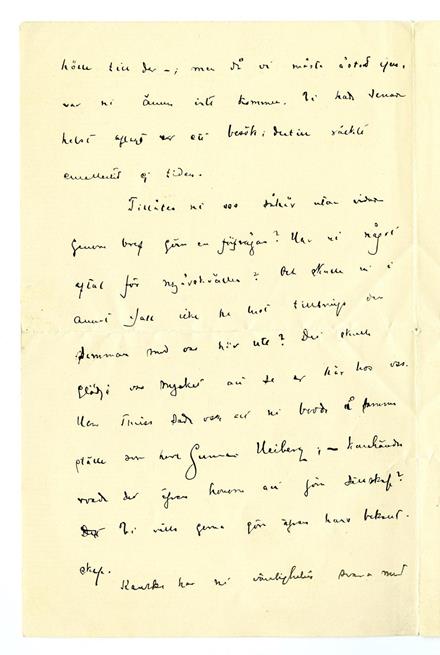 hölle till der –; men då vi måste åstad igen,
var ni ännu inte kommen. Vi hade senare
helst aflagt er ett besök; dertill räckte
emellertid ej tiden.
Tillåter ni oss såhär utan vidare
genom bref göra en förfrågan? Har ni något
aftal för nyårskvällen? Och skulle ni i
annat fall icke ha lust tillbringa den
samman med oss här ute? Det skulle
glädja oss mycket att se er här hos oss.
Herr Thiis sade oss att ni bodde på samma
ställe som herr Gunnar Heiberg; – kanhända
vore det äfven honom att göra sällskap?
Vi ville gerna göra äfven hans bekant-
skap.
Kanske har ni vänligheten svara med